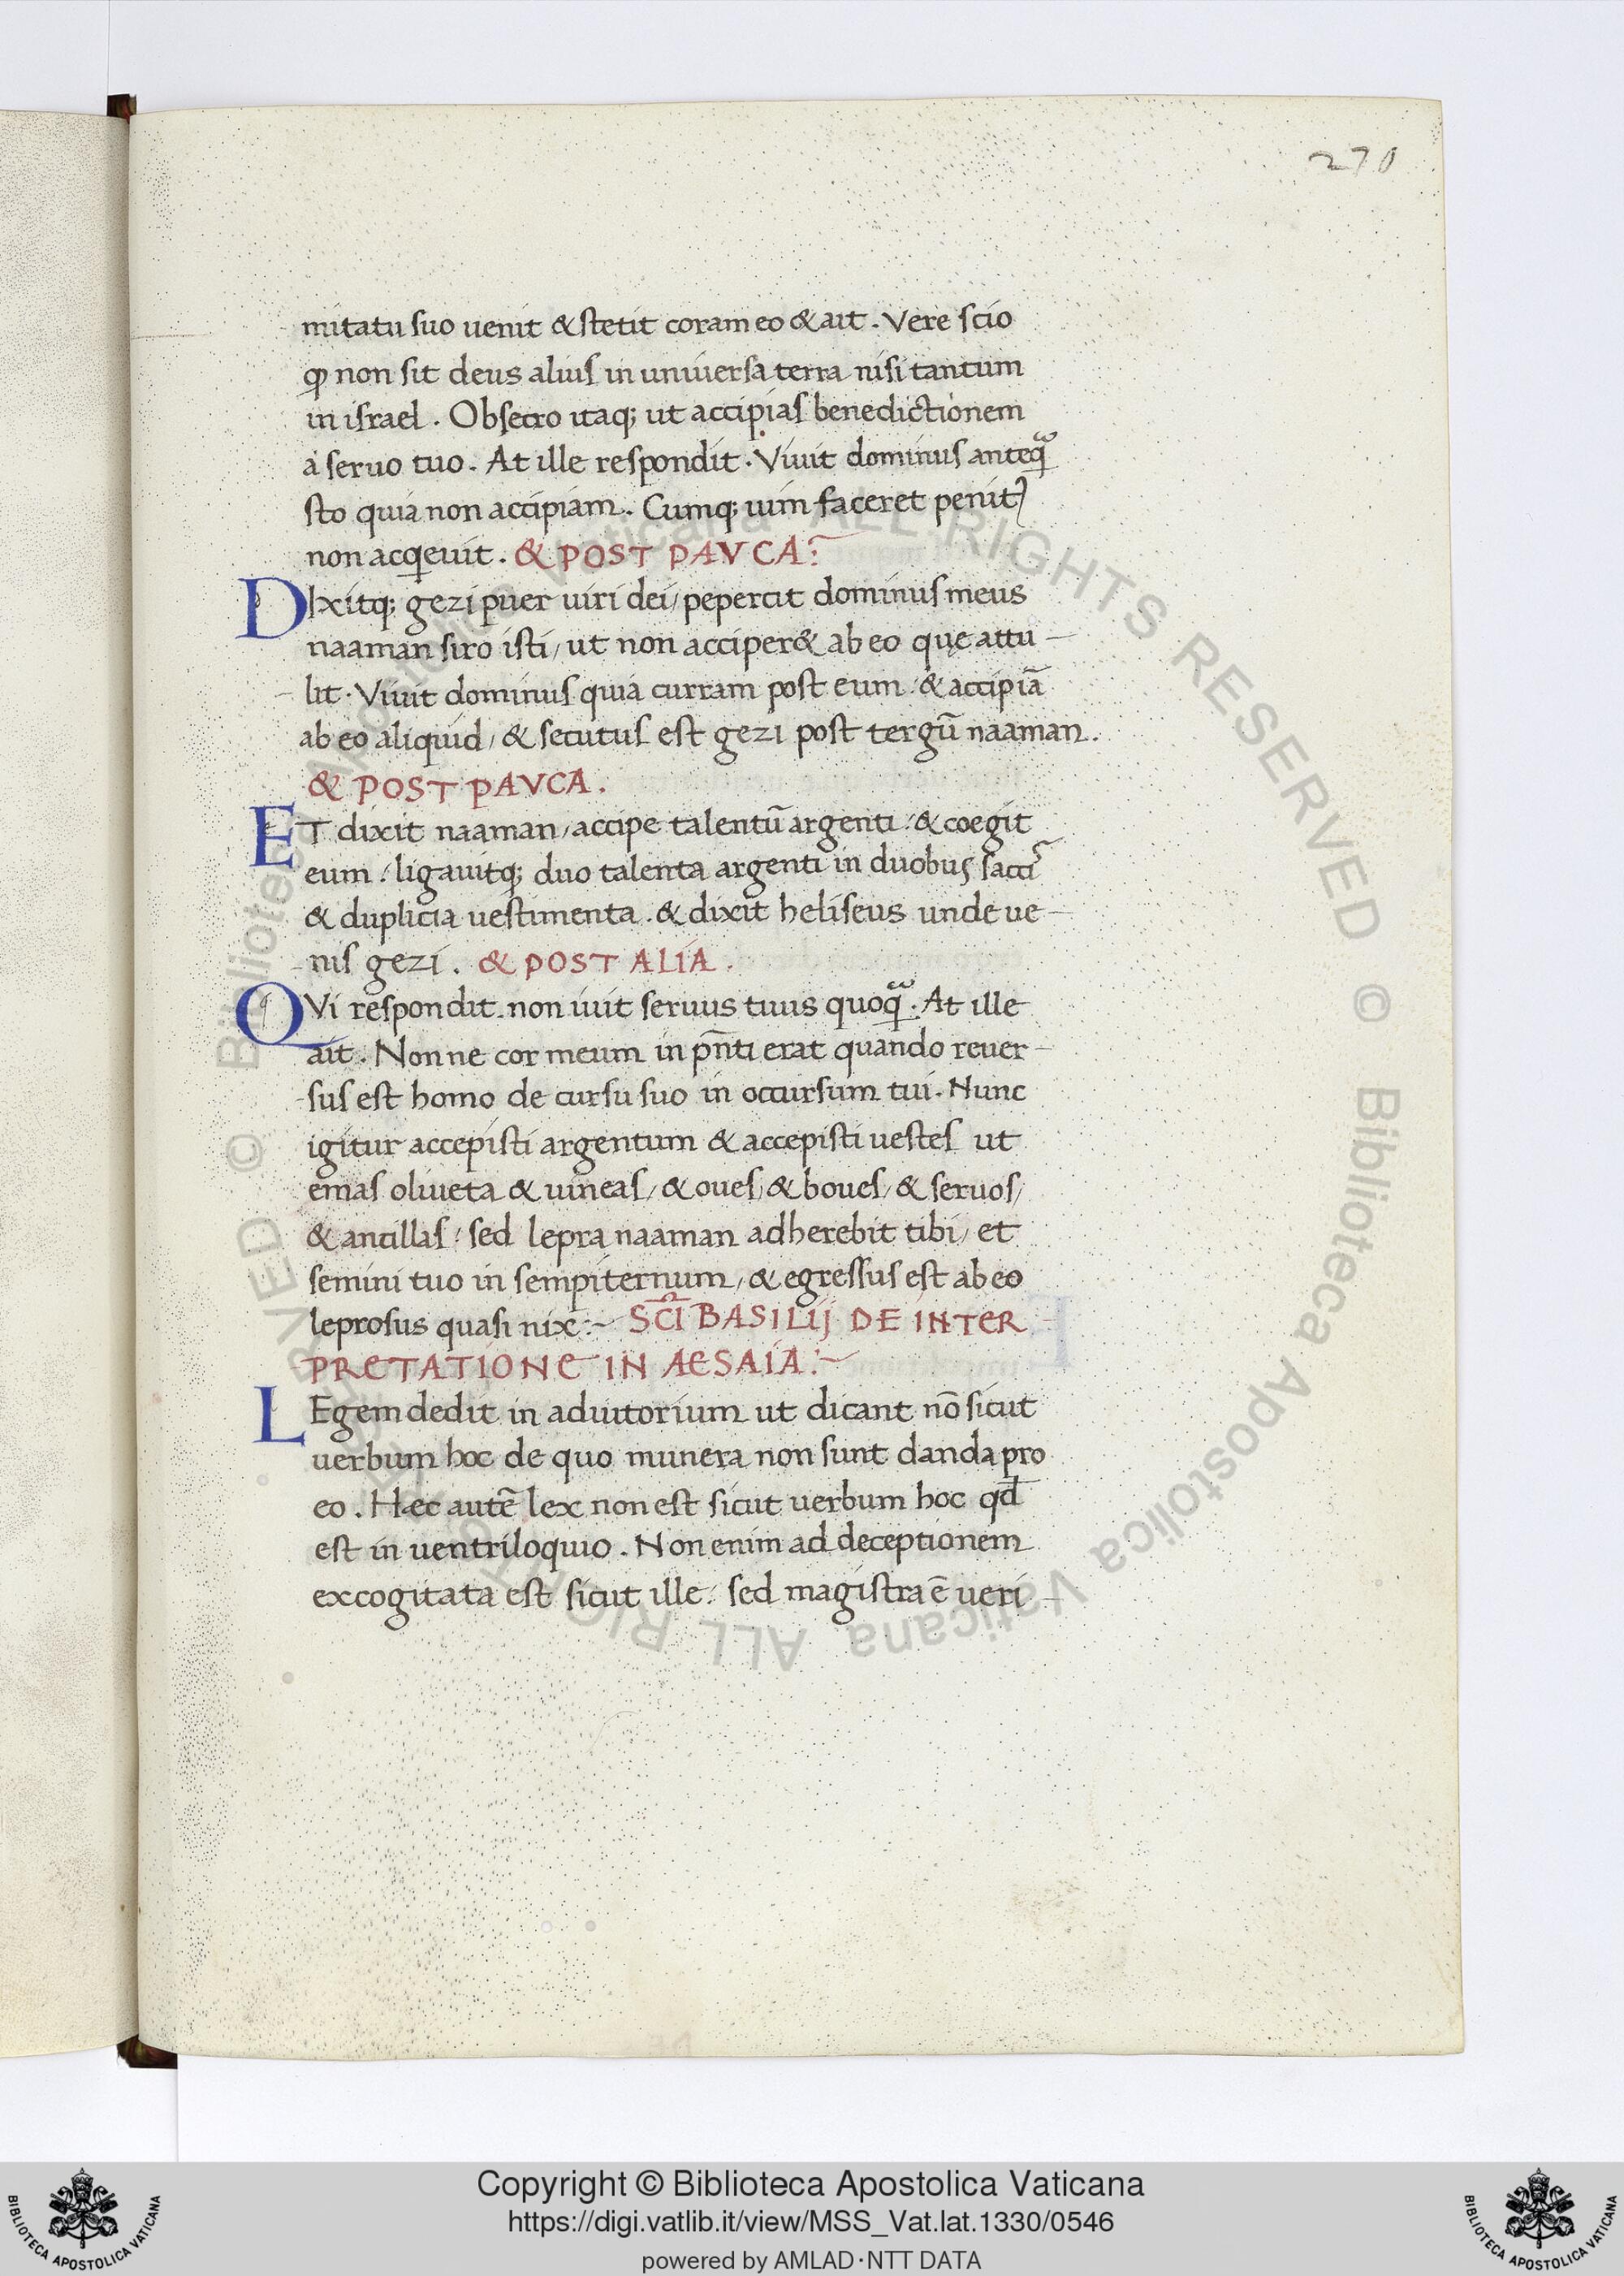 270
mitatu suo uenit & stetit coram eo & ait. Vere scio
ꝙ non sit deus alius in uniuersa terra nisi tantum
in israel. Obsecro itaq; ut accipias benedictionem
a seruo tuo. At ille respondit. Viuit dominus anteqᷓ
sto quia non accipiam. Cumq; uim faceret penitꝰ
non acqeuit. & POST PAVCA:
DIxitq; gezi puer uiri dei/ pepercit dominus meus
naaman siro isti/ ut non acciper& ab eo quę attu-
lit. Viuit dominus quia curram post eum/ & accipiā
ab eo aliquid/ & secutus est gezi post tergū naaman.
& POST PAVCA.
ET dixit naaman/ accipe talentū argenti/ & coegit
eum/ ligauitq; duo talenta argenti in duobus sacci᷒
& duplicia uestimenta. & dixit heliseus unde ue-
nis gezi. & POST ALIA.
QVi respondit. non iuit seruus tuus quoqᷓ. At ille
ait. Nonne cor meum in pn̄ti erat quando reuer-
sus est homo de cursu suo in occursum tui. Nunc
igitur accepisti argentum & accepisti uestes ut
emas oliueta & uineas/ & oues/ & boues/ & seruos/
& ancillas/ sed lepra naaman adherebit tibi/ et
semini tuo in sempiternum/ & egressus est ab eo
leprosus quasi nix:~ SC̄I BASILIJ DE INTER
PRETATIONE IN AESAIA:~
LEgem dedit in adiutorium ut dicant nō sicut
uerbum hoc de quo munera non sunt danda pro
eo. Hęc autē lex non est sicut uerbum hoc qd̄
est in uentriloquio. Non enim ad deceptionem
excogitata est sicut ille/ sed magistra ē ueri-
© Biblioteca Apostolica Vaticana ALL RIGHTS RESERVED
© Biblioteca Apostolica Vaticana ALL RIGHTS RESERVED
BIBLIOTECA APOSTOLICA VATICANA
Copyright © Biblioteca Apostolica Vaticana
https://digi.vatlib.it/view/MSS_Vat.lat.1330/0546
powered by AMLAD·NTT DATA
BIBLIOTECA APOSTOLICA VATICANA